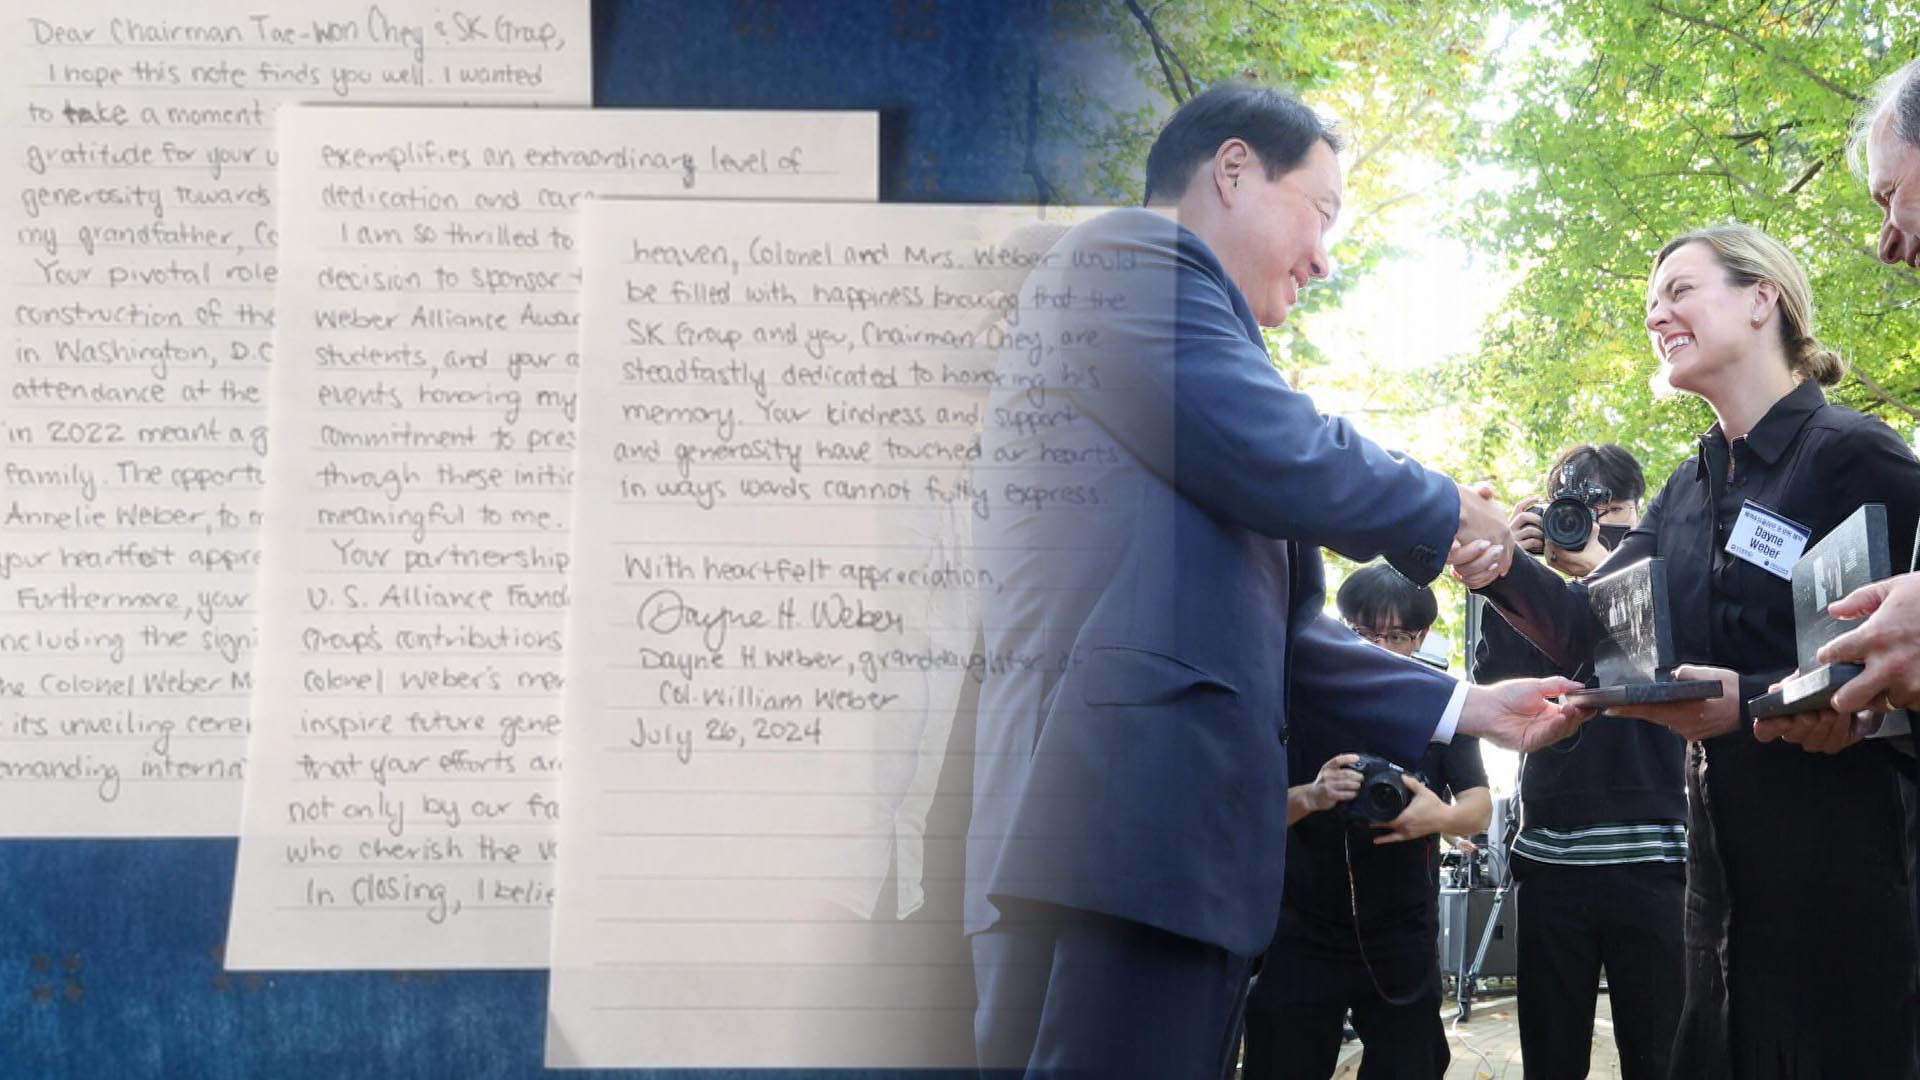 Dear Chairman Tae-won Chey & SK Group,
I hope this note finds you well. I wanted
to take a moment
gratitude for your
generosity towards
my grandfather,
Your pivotal role
construction of the
in Washington, D.C
attendance at the
in 2022 meant a
family. The
Annelie Weber, to
your heartfelt
Furthermore, your
including the
the Colonel Weber
its unveiling
exemplifies an extraordinary level of
dedication and
I am so thrilled to
decision to sponsor
Weber Alliance
students, and your
events honoring my
commitment to
through these
meaningful to me.
Your partnership
U.S. Alliance
Group's contributions
Colonel Weber's
inspire future
that your efforts
not only by our
who cherish the
In closing, I
heaven, Colonel and Mrs. Weber would
be filled with happiness knowing that the
SK Group and you, Chairman Chey, are
steadfastly dedicated to honoring his
memory. Your kindness and support
and generosity have touched our hearts
in ways words cannot fully express.
With heartfelt appreciation,
Dayne H. Weber
Dayne H Weber, granddaughter of
Col. William Weber
July 26, 2024
Dayne
Weber